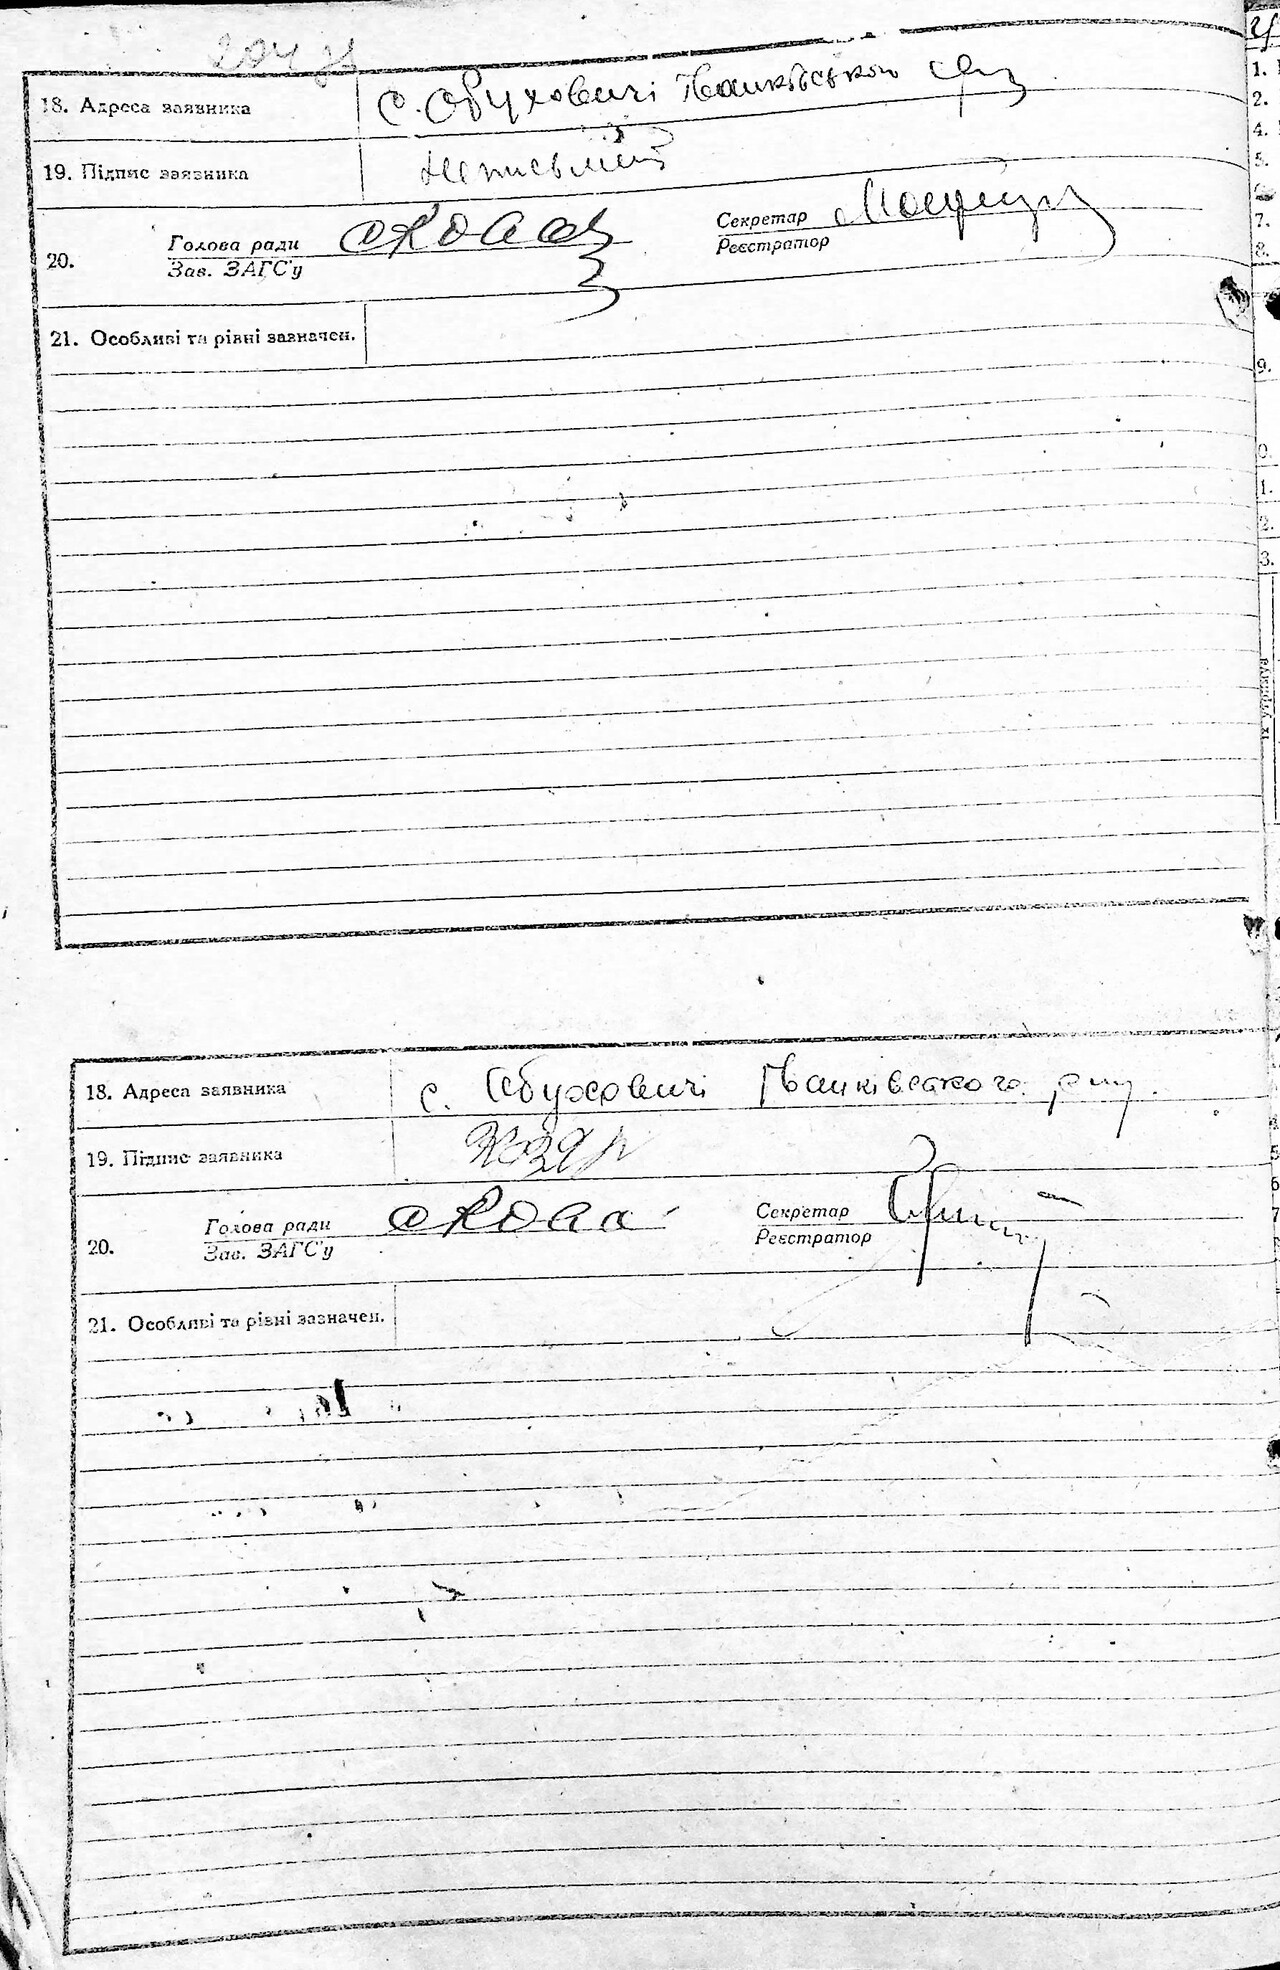 204 зв
18. Адреса заявника с. Обуховичі Іванківського р-ну
19. Підпис заявника неписьмен
20. Голова ради Секретар
Зав. ЗАГС'у Реєстратор
21. Особливі та рівні зазначен.
18. Адреса заявника с. Обуховичі Іванківського р-ну.
19. Підпис заявника
20. Голова ради Секретар
Зав. ЗАГС'у Реєстратор
21. Особливі та рівні зазначен.